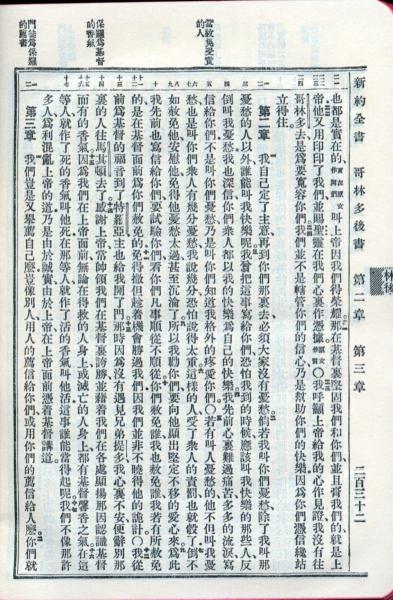 新約全書 哥林多後書 第二章 第三章 二百三十二
林後
當赦免受責
的人
保羅爲基督
的香氣
門徒爲保羅
的薦書
也都是實在的、實在原文作阿們叫上帝因我們得榮耀那在基督裏堅固我們和你們、並且膏我們的、就是上
帝他又用印印了我們並賜聖靈在我們心裏作憑據原文作質〇我呼籲上帝給我的心作見證我沒有往
哥林多去是爲要寬容你們我們並不是轄管你們的信心乃是幫助你們的快樂因爲你們憑信纔站
立得住
第二章 我自己定了主意再到你們那裏去必須大家沒有憂愁倘若我叫你們憂愁除了我叫那
憂愁的人以外誰能叫我快樂呢我曾把這事寫給你們恐怕我到的時候應該叫我快樂的那些人反
倒叫我憂愁我也深信你們衆人都以我的快樂爲自己的快樂我先前心裏難過痛苦多多的流淚寫
信給你們不是叫你們憂愁乃是叫你們知道我格外的疼愛你們〇若有叫人憂愁的他不但叫我憂
愁也是叫你們衆人有幾分憂愁我說幾分恐怕說得太重這樣的人受了衆人的責罰也就彀了倒不
如赦免他安慰他免得他憂愁太過甚至沉淪了所以我勸你們要向他顯出堅定不移的愛心來爲此
我先前也寫信給你們要試驗你們看你們凡事順從不順從你們赦免誰我也赦免誰我若有所赦免
的是在基督面前爲你們赦免的免得撒但趁着機會勝過我們因我們並非不曉得他的詭計〇我從
前爲基督的福音到了特羅亞主也給我開了門那時因爲沒有遇見兄弟提多我心裏不安便辭別那
裏的人往馬其頓去了感謝上帝常帥領我們在基督裏誇勝並藉着我們在各處顯揚那因認識基督
而有的香氣因爲我們在上帝面前無論在得救的人身上或滅亡的人身上都有基督馨香之氣在這
等人就作了死的香氣叫他死在那等人就作了活的香氣叫他活這事誰能當得起呢我們不像那許
多人爲利混亂上帝的道乃是由於誠實由於上帝在上帝面前憑着基督講道
第三章 我們豈是又舉薦自己麽豈像別人用人的薦信給你們或用你們的薦信給人麽你們就